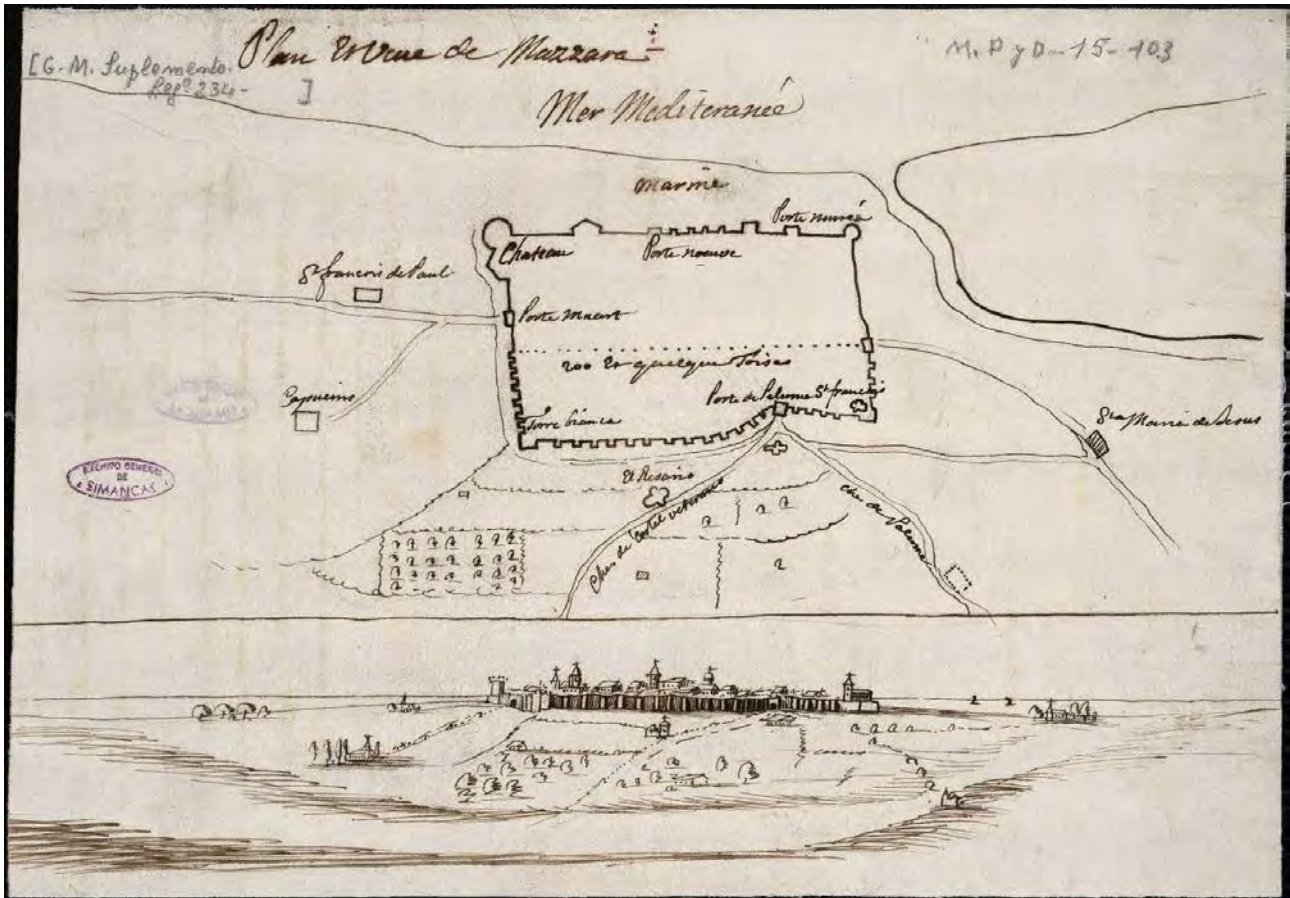 Plan Et Vue de Mazzara
[G. M. Suplemento.
Legº 234-
]
M. P y D - 15 - 103
Mer Mediteranée
marine
Porte
Chateau
Porte noeuve
St francois de Paul
Porte
200 Et quelque Toises
Capucins
Porte de Palerme
St francois
Torre bianca
Sta Maria de Jesus
ARCHIVO GENERAL
DE
SIMANCAS
El Rosario
Che de Castel veterano
che de Palerme